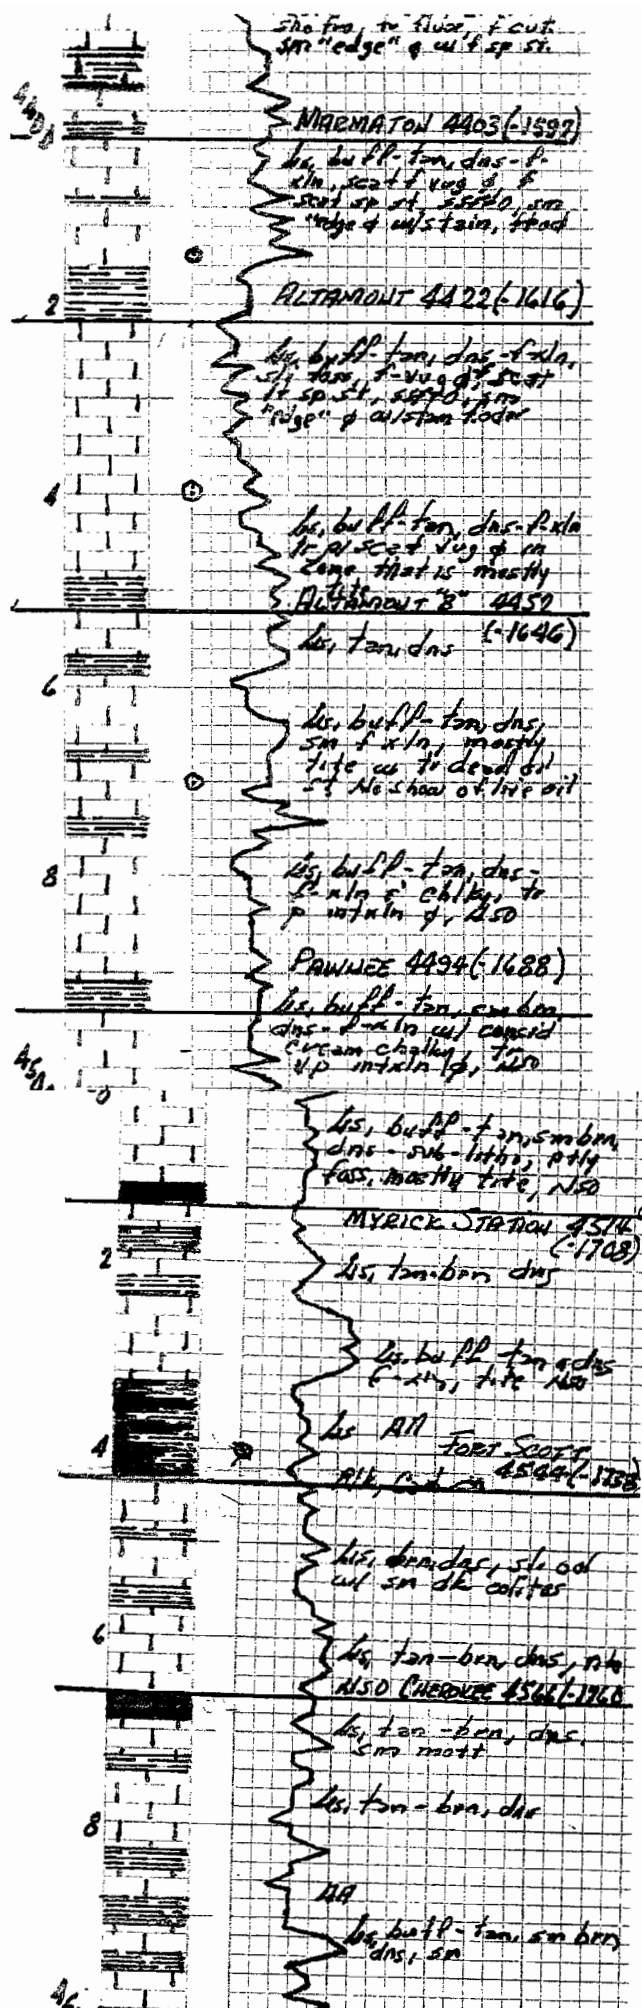 sm "edge" ϕ w/ f sp st.
4400
MARMATON 4403 (-1597)
Ls, buff-tan, dns-f-
xln, scat f vug ϕ f
scat sp st, SSFFO, sm
"edge ϕ w/stain, f od
2
ALTAMONT 4422 (-1616)
Ls, buff-tan, dns-f-xln,
sli foss, f-vug ϕ, scat
lt sp st, SSFFO, sm
"edge" ϕ w/stain f odor
4
Ls, buff-tan, dns-f-xln
scat vug ϕ in
zone that is mostly
tite
ALTAMONT "B" 4452
(-1646)
Ls, tan, dns
6
Ls, buff-tan, dns,
sm f xln, mostly
tite w tr dead oil
st No show of live oil
8
Ls, buff-tan, dns-
f-xln & chlky, tr
p intxln ϕ, NSO
PAWNEE 4494 (-1688)
Ls, buff-tan, sm brn,
dns-f-xln w/ consid
cream chalky, tr
v.p intxln ϕ, NSO
450
0
Ls, buff-tan, sm brn,
dns-sub-litho, ptly
foss, mostly tite, NSO
MYRICK STATION 4514
(-1708)
2
Ls, tan-brn dns
Ls, buff-tan, dns
f-xln, tite NSO
Ls AA
FORT SCOTT
4
4544 (-1738)
Ls, brn, dns, sli ool
w/ sm dk oolites
6
Ls, tan-brn, dns,
NSO CHEROKEE 4566 (-1760
Ls, tan-brn, dns,
sm mott
Ls, tan-brn, dns
8
AA
Ls, buff-tan, sm brn
dns, sm
46